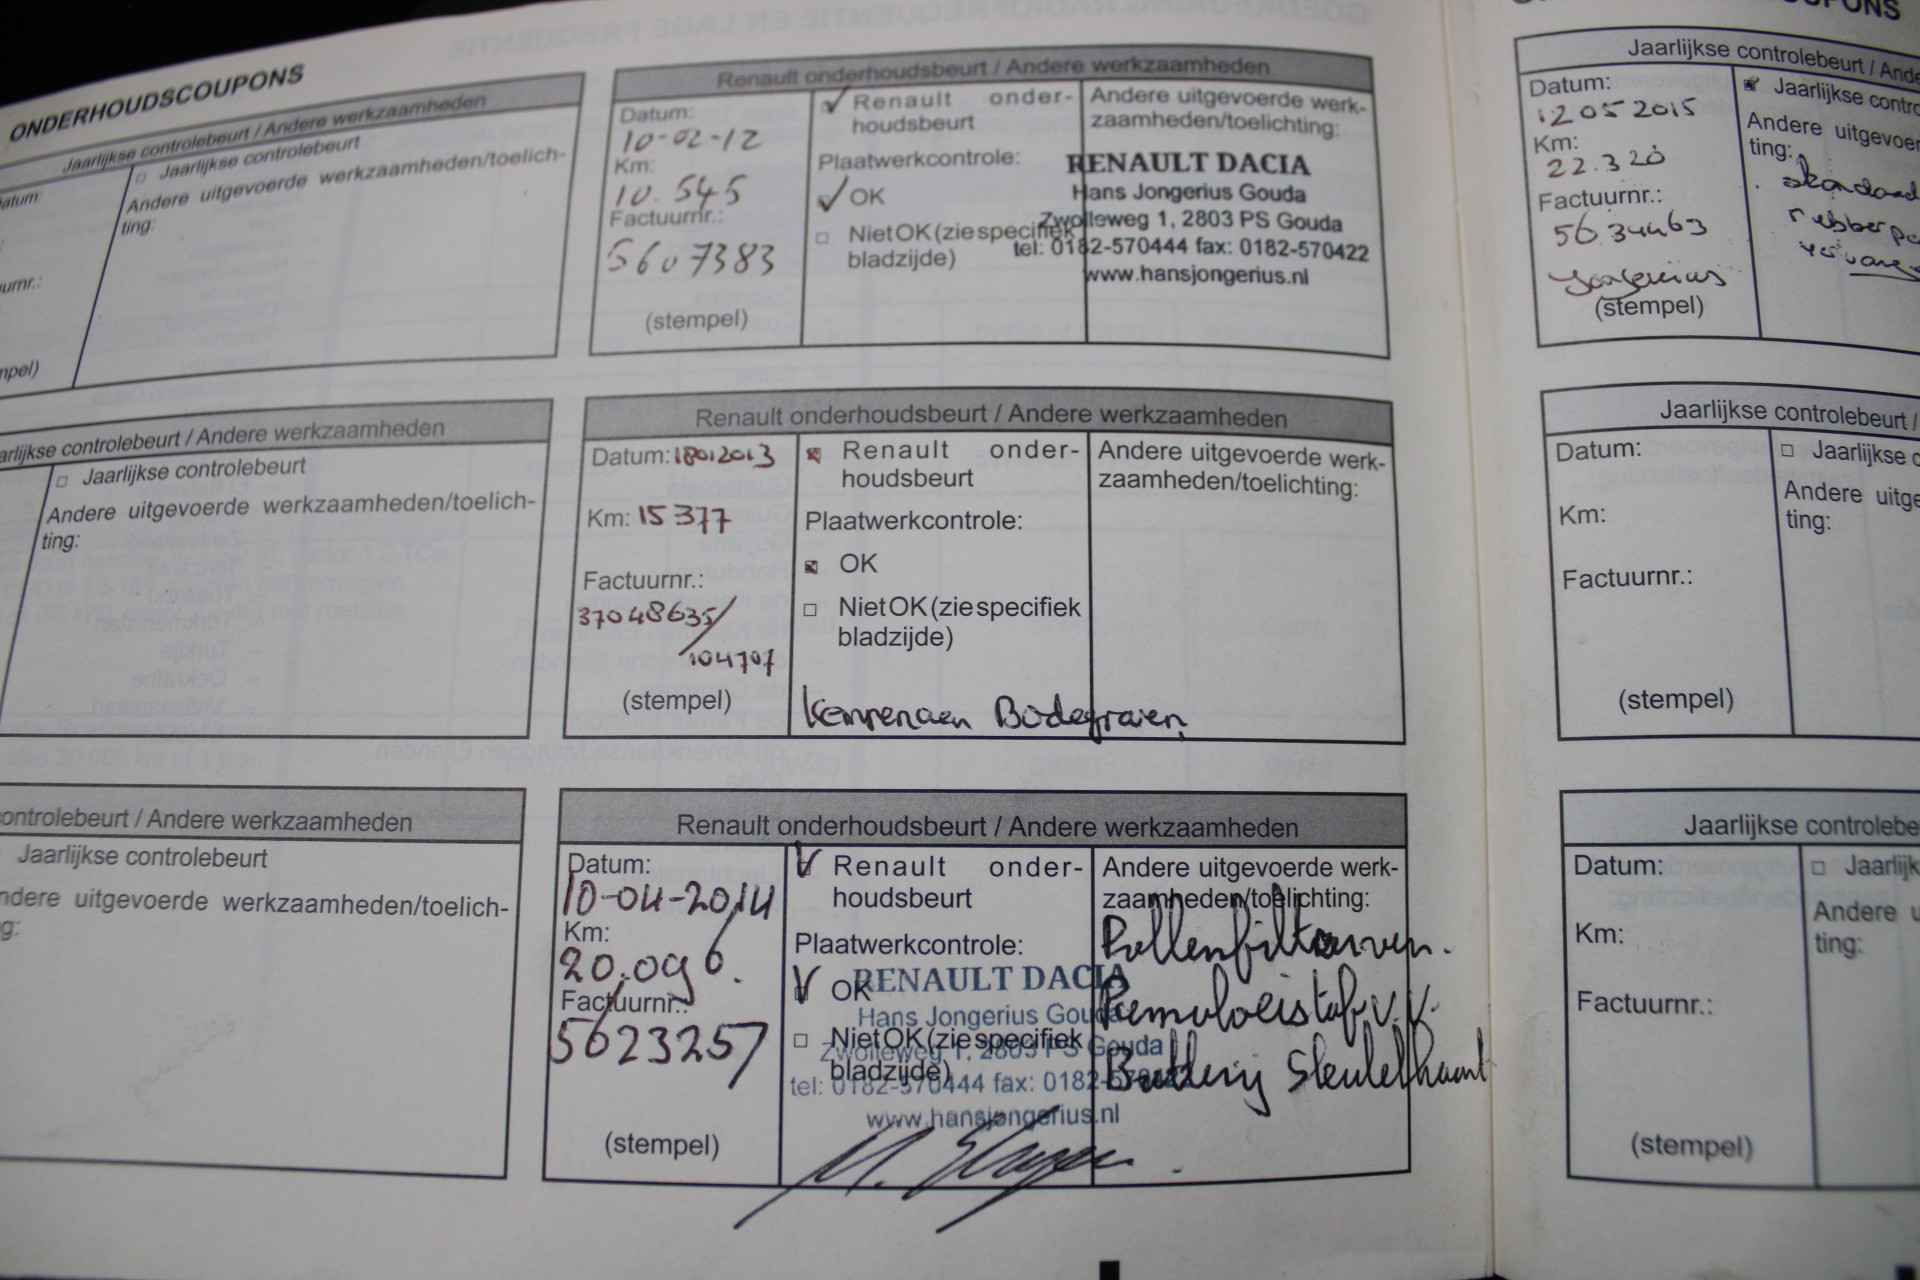 ONDERHOUDSCOUPONS
Jaarlijkse controlebeurt / Andere werkzaamheden
atum
□ Jaarlijkse controlebeurt
Andere uitgevoerde werkzaamheden/toelich-
ting:
urnr.:
mpel)
arlijkse controlebeurt / Andere werkzaamheden
□ Jaarlijkse controlebeurt
Andere uitgevoerde werkzaamheden/toelich-
ting:
ontrolebeurt / Andere werkzaamheden
Jaarlijkse controlebeurt
ndere uitgevoerde werkzaamheden/toelich-
g:
Renault onderhoudsbeurt / Andere werkzaamheden
Datum:
10-02-12
Km:
10.545
Factuurnr.:
5607383
(stempel)
Renault onder-
houdsbeurt
Plaatwerkcontrole:
OK
□ Niet OK (zie specifiek
bladzijde)
Andere uitgevoerde werk-
zaamheden/toelichting:
RENAULT DACIA
Hans Jongerius Gouda
Zwolleweg 1, 2803 PS Gouda
tel: 0182-570444 fax: 0182-570422
www.hansjongerius.nl
Renault onderhoudsbeurt / Andere werkzaamheden
Datum: 18012013
Km: 15377
Factuurnr.:
37048635/
104707
(stempel)
Renault onder-
houdsbeurt
Plaatwerkcontrole:
OK
□ Niet OK (zie specifiek
bladzijde)
Kempenaen Bodegraven
Andere uitgevoerde werk-
zaamheden/toelichting:
Renault onderhoudsbeurt / Andere werkzaamheden
Datum:
10-04-2014
Km:
20.096.
Factuurnr.:
5623257
(stempel)
Renault onder-
houdsbeurt
Plaatwerkcontrole:
OK
□ Niet OK (zie specifiek
bladzijde)
RENAULT DACIA
Hans Jongerius Gouda
Zwolleweg 1, 2803 PS Gouda
tel: 0182-570444 fax: 0182-570422
www.hansjongerius.nl
Andere uitgevoerde werk-
zaamheden/toelichting:
Pollenfilter verv.
Remvloeistof v.v.
Batterij Sleutelkaart
OUPONS
Jaarlijkse controlebeurt / Ande
Datum:
12052015
Km:
22.320
Factuurnr.:
5634463
Jongerius
(stempel)
Jaarlijkse contro
Andere uitgevoer
ting:
standaard
rubber
Jaarlijkse controlebeurt /
Datum:
Km:
Factuurnr.:
(stempel)
□ Jaarlijkse c
Andere uitge
ting:
Jaarlijkse controlebe
Datum:
Km:
Factuurnr.:
(stempel)
□ Jaarlijk
Andere u
ting: